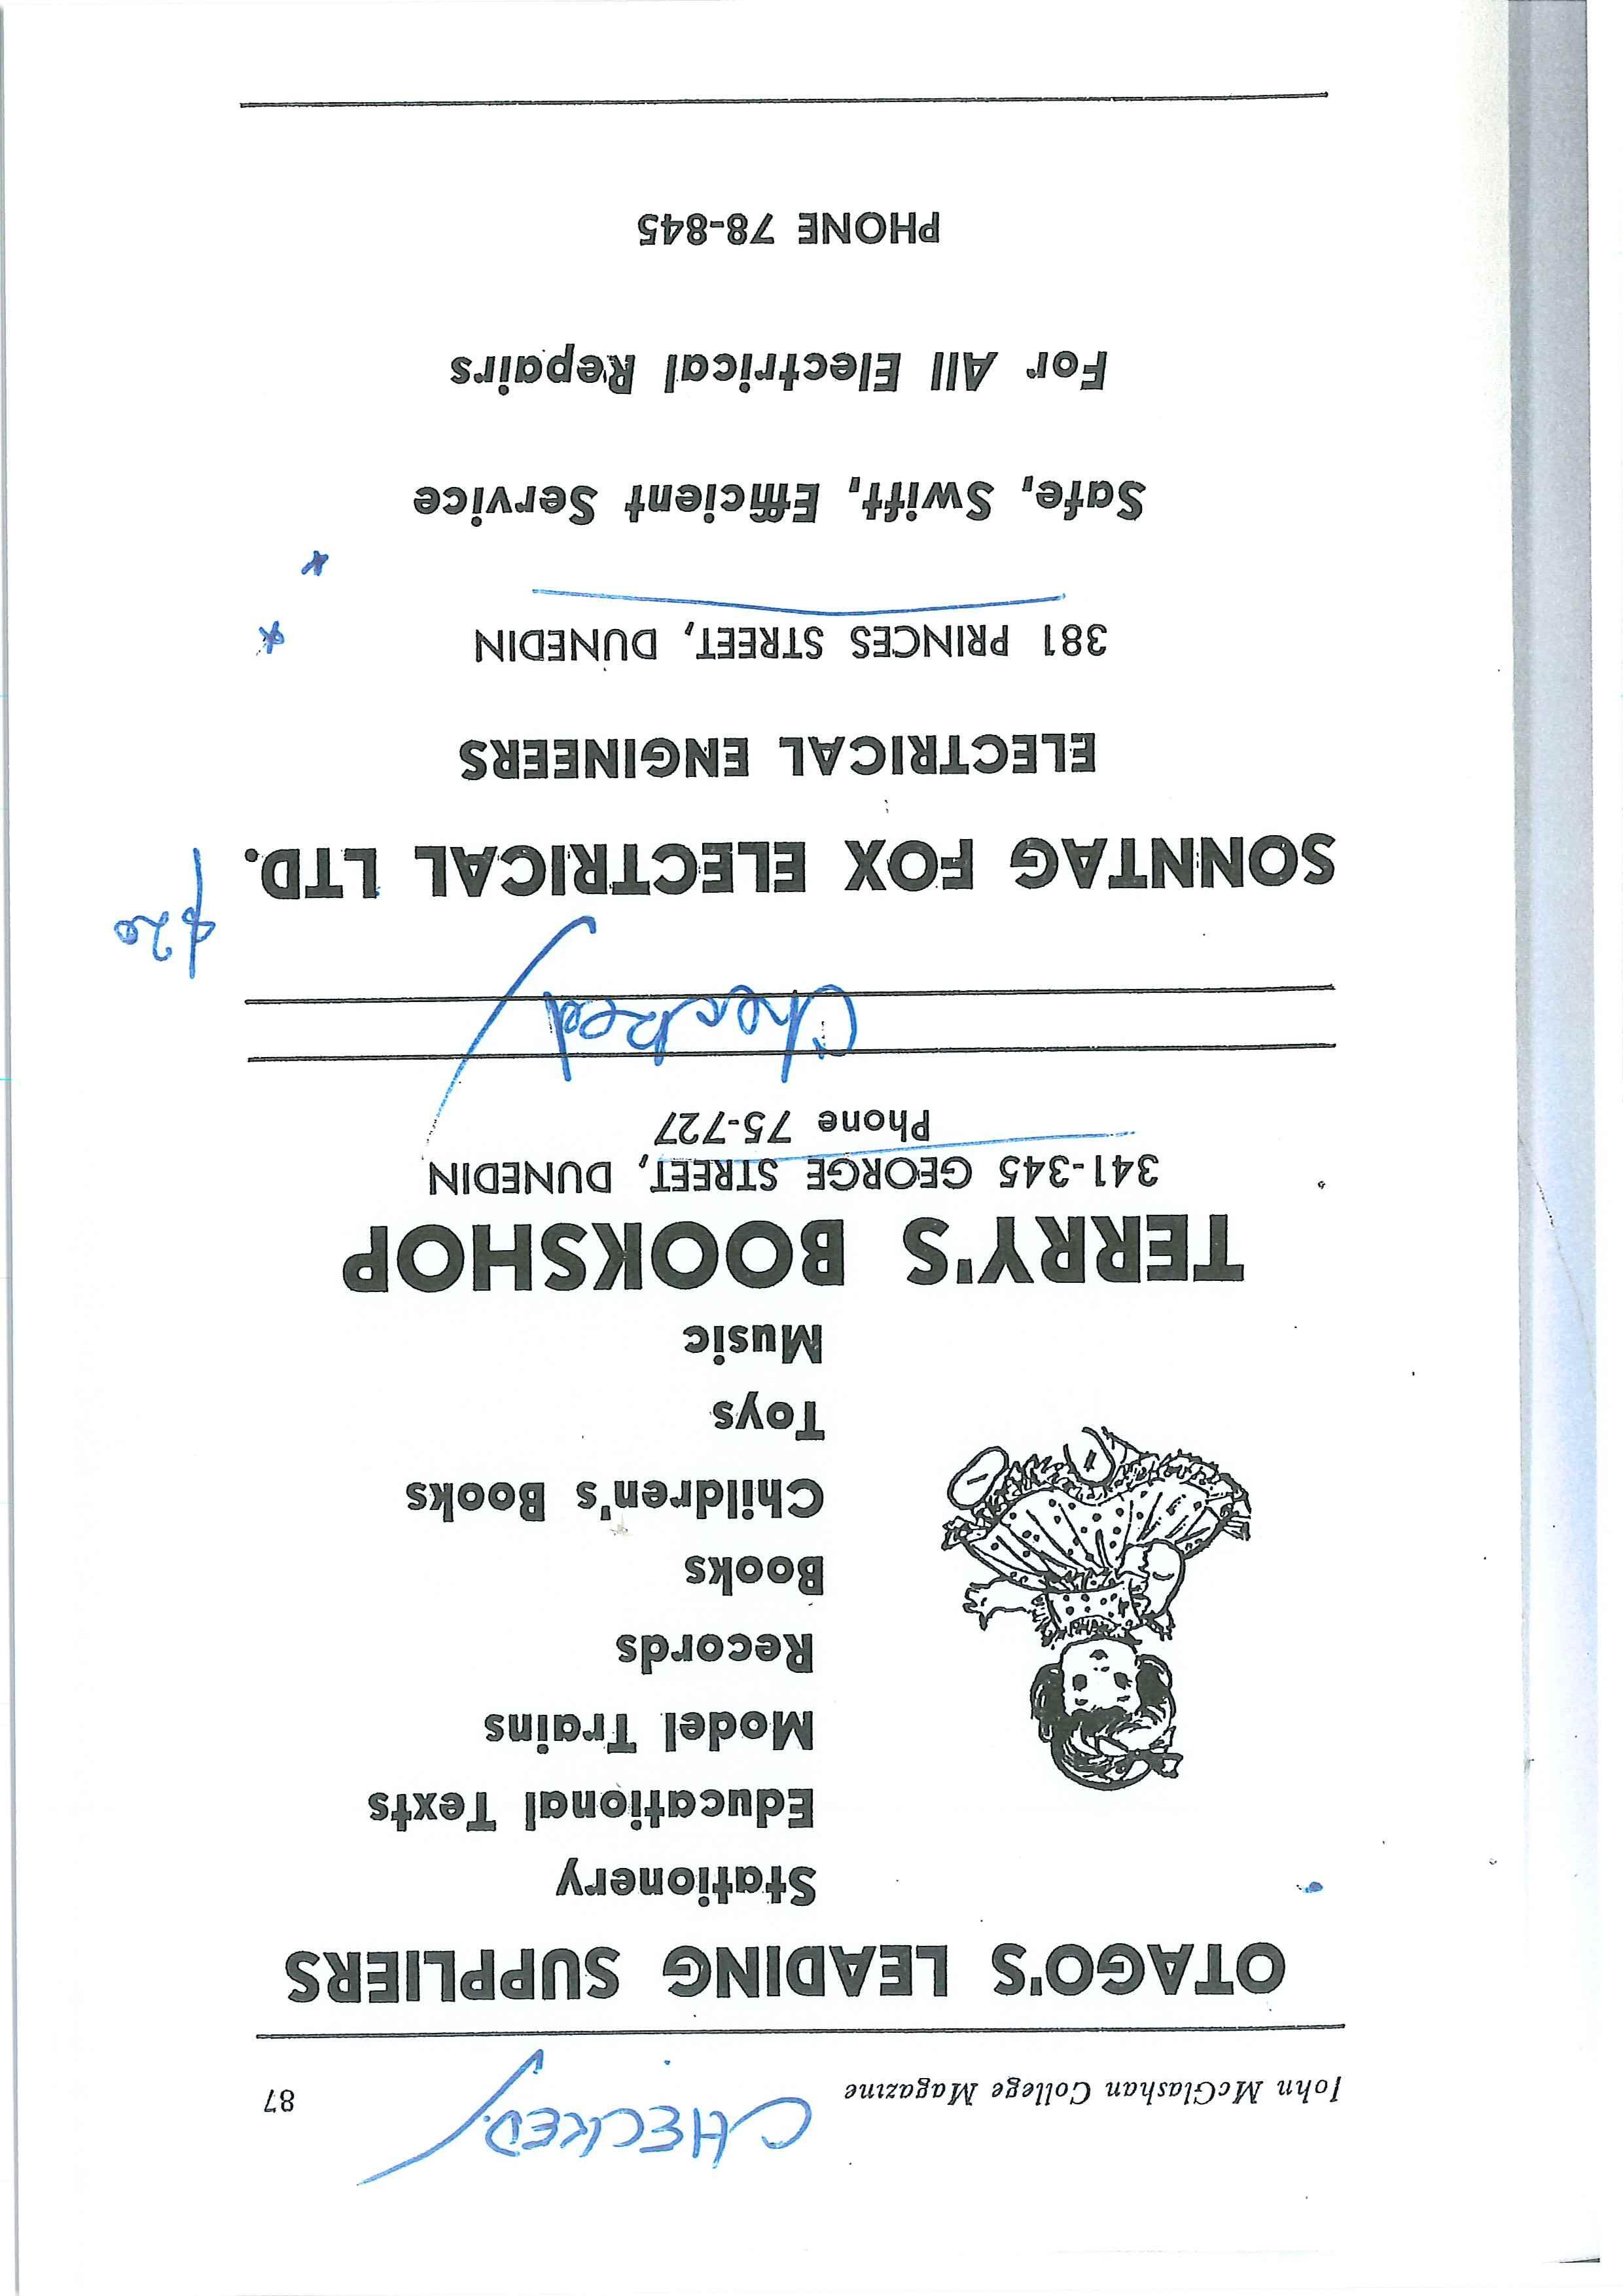 CHECKED.
John McGlashan College Magazine 87
OTAGO'S LEADING SUPPLIERS
Stationery
Educational Texts
Model Trains
Records
Books
Children's Books
Toys
Music
TERRY'S BOOKSHOP
341-345 GEORGE STREET, DUNEDIN
Phone 75-727
Checked
$20
SONNTAG FOX ELECTRICAL LTD.
ELECTRICAL ENGINEERS
381 PRINCES STREET, DUNEDIN
Safe, Swift, Efficient Service
For All Electrical Repairs
PHONE 78-845